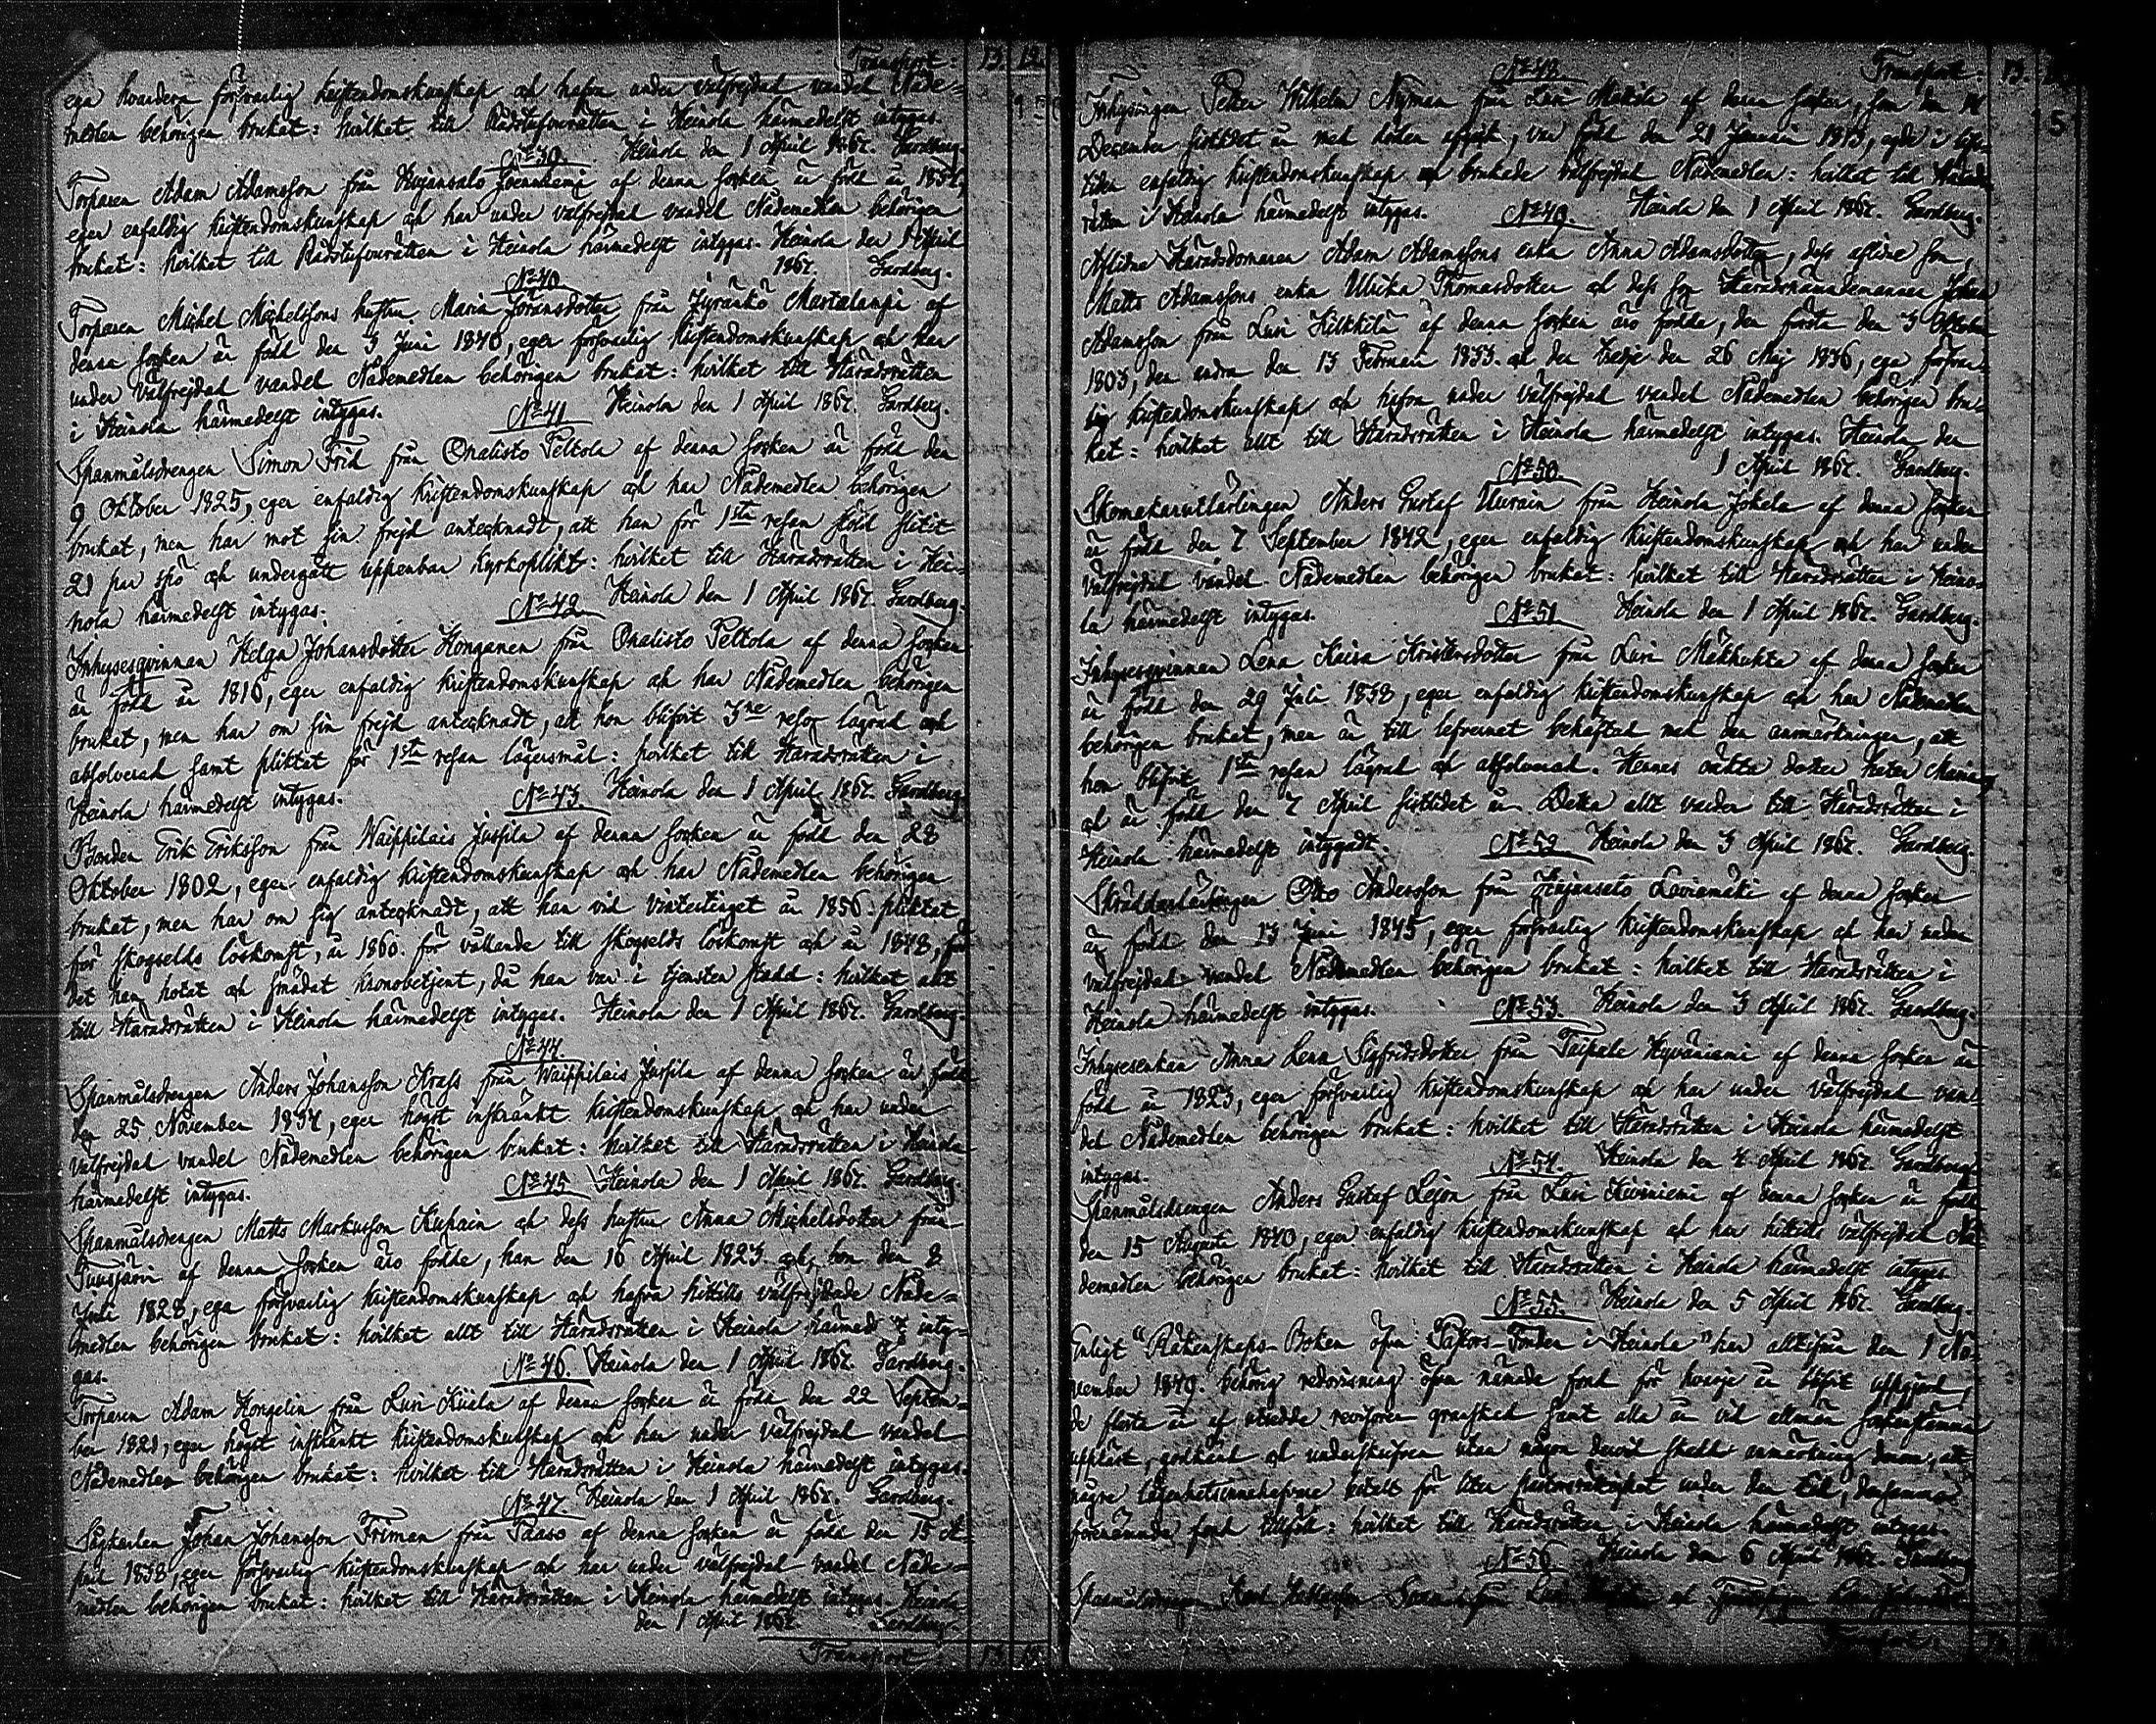 Transport. 13. 12.
ega hvardera försvarlig kristendomskunskap och hafva under välfrejdad vandel Nåde-
medlen behörigen brukat: hvilket till Rådstufvurätten i Heinola härmedelst intygas.
No 39. Heinola den 1 April 1867. Gardberg.
Torparen Adam Adamsson från Hujansalo af denna socken är född år
eger enfaldig kristendomskunskap och har under välfrejdad vandel Nådemedlen behörigen
brukat: hvilket till Rådstufvurätten i Heinola härmedelst intygas. Heinola den 1 April
No 40. 1867. Gardberg.
Torparen Michel Michelssons hustru Maria Göransdotter från Jyränkö Mertalampi af
denna socken är född den 3 Juni 1840, eger försvarlig kristendomskunskap och har
under välfrejdad vandel Nådemedlen behörigen brukat: hvilket till Häradsrätten
i Heinola härmedelst intygas. No 41 Heinola den 1 April 1867. Gardberg.
Spanmålsdrengen Simon Frid från Onalisto Peltola af denna socken är född den
9 Oktober 1825, eger enfaldig kristendomskunskap och har Nådemedlen behörigen
brukat, men har mot sin frejd antecknadt, att han för 1sta resan stöld slitit
21 par spö och undergått uppenbar kyrkoplikt: hvilket till Häradsrätten i Hei-
nola härmedelst intygas. No 42 Heinola den 1 April 1867. Gardberg.
Inhysesqvinnan Helga Johansdotter Honganen från Onalisto Peltola af denna socken
är född år 1810, eger enfaldig kristendomskunskap och har Nådemedlen behörigen
brukat, men har om sin frejd antecknadt, att hon blifvit 3ne resor lägrad och
absolverad samt pliktat för 1sta resan lägersmål: hvilket till Häradsrätten i
Heinola härmedelst intygas. No 43 Heinola den 1 April 1867. Gardberg.
Bonden Erik Eriksson från Waippilais Jussila af denna socken är född den 28
Oktober 1802, eger enfaldig kristendomskunskap och har Nådemedlen behörigen
brukat, men har om sig antecknadt, att han vid vintertinget år 1856 pliktat
för skogselds löskomst, år 1860 för vållande till skogselds löskomst och år 1848, för
det han hotat och smädat kronobetjent, då han var i tjensten stadd: hvilket allt
till Häradsrätten i Heinola härmedelst intygas. Heinola den 1 April 1867. Gardberg.
No 44.
Spanmålsdrengen Anders Johansson Krass från Waippilais Jussila af denna socken är född
den 25 November 1834, eger högst inskränkt kristendomskunskap och har under
välfrejdad vandel Nådemedlen behörigen brukat: hvilket till Häradsrätten i Heinola
härmedelst intygas. No 45 Heinola den 1 April 1867. Gardberg.
Spanmålsdrengen Matts Markusson Kuhain och dess hustru Anna Michelsdotter från
Tuusjärvi af denna socken äro födde, han den 16 April 1823 och hon den 8
Juli 1828, ega försvarlig kristendomskunskap och hafva hittills välfrejdade Nåde-
medlen behörigen brukat: hvilket allt till Häradsrätten i Heinola härmedelst inty-
gas. No 46. Heinola den 1 April 1867. Gardberg.
Torparen Adam Hongelin från Lusi Küala af denna socken är född den 22 Septem-
ber 1821, eger högst inskränkt kristendomskunskap och har under välfrejdad vandel
Nådemedlen behörigen brukat: hvilket till Häradsrätten i Heinola härmedelst intygas.
No 47 Heinola den 1 April 1867. Gardberg.
Sågkarlen Johan Johansson Friman från Taaso af denna socken är född den 15 A-
pril 1838, eger försvarlig kristendomskunskap och har under välfrejdad vandel Nåde-
medlen behörigen brukat: hvilket till Häradsrätten i Heinola härmedelst intygas. Heinola
den 1 April 1867. Gardberg.
Transport 13 15
No 48 Transport 13.
Inhysingen Petter Wilhelm Nyman från Lusi Mutila af denna socken, som den 14
December sistlidet år med döden afgick, var född den 21 Januari 1813, egde i lifs-
tiden enfaldig kristendomskunskap och brukade välfrejdad Nådemedlen: hvilket till Härads-
rätten i Heinola härmedelst intygas. No 49. Heinola den 1 April 1867. Gardberg.
Aflidne Häradsdomaren Adam Adamssons enka Anna Adamsdotter, dess aflidne son,
Matts Adamssons enka Ulrika Thomasdotter och dess son Häradsnämndemannen Johan
Adamsson från Lusi Kilkkilä af denna socken äro födda, den första den 3 Oktober
1803, den andra den 13 Februari 1833 och den tredje den 26 Maj 1836, ega försvar-
lig kristendomskunskap och hafva under välfrejdad vandel Nådemedlen behörigen bru-
kat: hvilket allt till Häradsrätten i Heinola härmedelst intygas. Heinola den
No 50. 1 April 1867. Gardberg.
Skomakarutlärlingen Anders Gustaf Uurain från Heinola Jokela af denna socken
är född den 7 September 1842, eger enfaldig kristendomskunskap och har under
välfrejdad vandel Nådemedlen behörigen brukat: hvilket till Häradsrätten i Heino-
la härmedelst intygas. No 51 Heinola den 1 April 1867. Gardberg.
Inhysesqvinnan Lena Kaisa Kristersdotter från Lusi Mäkkukka af denna socken
är född den 29 Juli 1838, eger enfaldig kristendomskunskap och har Nådemedlen
behörigen brukat, men är till lefvernet behäftad med den anmärkningen, att
hon blifvit 1sta resan lägrad och absolverad. Hennes oäkta dotter heter Maria
och är född den 7 April sistlidet år. Detta allt varder till Häradsrätten i
Heinola härmedelst intygadt. No 52 Heinola den 3 April 1867. Gardberg.
Skräddarlärlingen Otto Andersson från Hujansalo Laviamäki af denna socken
är född den 13 Juni 1845, eger försvarlig kristendomskunskap och har under
välfrejdad vandel Nådemedlen behörigen brukat: hvilket till Häradsrätten i
Heinola härmedelst intygas. No 53. Heinola den 3 April 1867. Gardberg.
Inhysesenkan Anna Lena Sigfridsdotter från Taipale Hyväniemi af denna socken är
född år 1823, eger försvarlig kristendomskunskap och har under välfrejdad van-
del Nådemedlen behörigen brukat: hvilket till Häradsrätten i Heinola härmedelst
intygas. No 54. Heinola den 4 April 1867. Gardberg.
Spanmålsdrengen Anders Gustaf Lejon från Lusi Kiviniemi af denna socken är född
den 15 Augusti 1840, eger enfaldig kristendomskunskap och har hittills välfrejdad Nå-
demedlen behörigen brukat: hvilket till Häradsrätten i Heinola härmedelst intygas.
No 55. Heinola den 5 April 1867. Gardberg.
Enligt "Räkenskaps-Boken öfver Pastors-Fonden i Heinola" har alltifrån den 1 No-
vember 1849 behörig redovisning öfver nämnde fond för hvarje år blifvit uppgjord,
de flesta år af utsedde revisorer granskad samt alla år vid allmän sockenstämma
uppläst, godkänd och underskrifven utan någon dervid skedd anmärkning derom, att
någre lägenhetsinnehafvare betalt för liten pastorsrättighet under den tid, densamma
förenämnda fond tillföll: hvilket till Häradsrätten i Heinola härmedelst intygas.
No 56 Heinola den 6 April 1867. Gardberg.
Spanmålsdrengen Karl från Lusi och
Transport